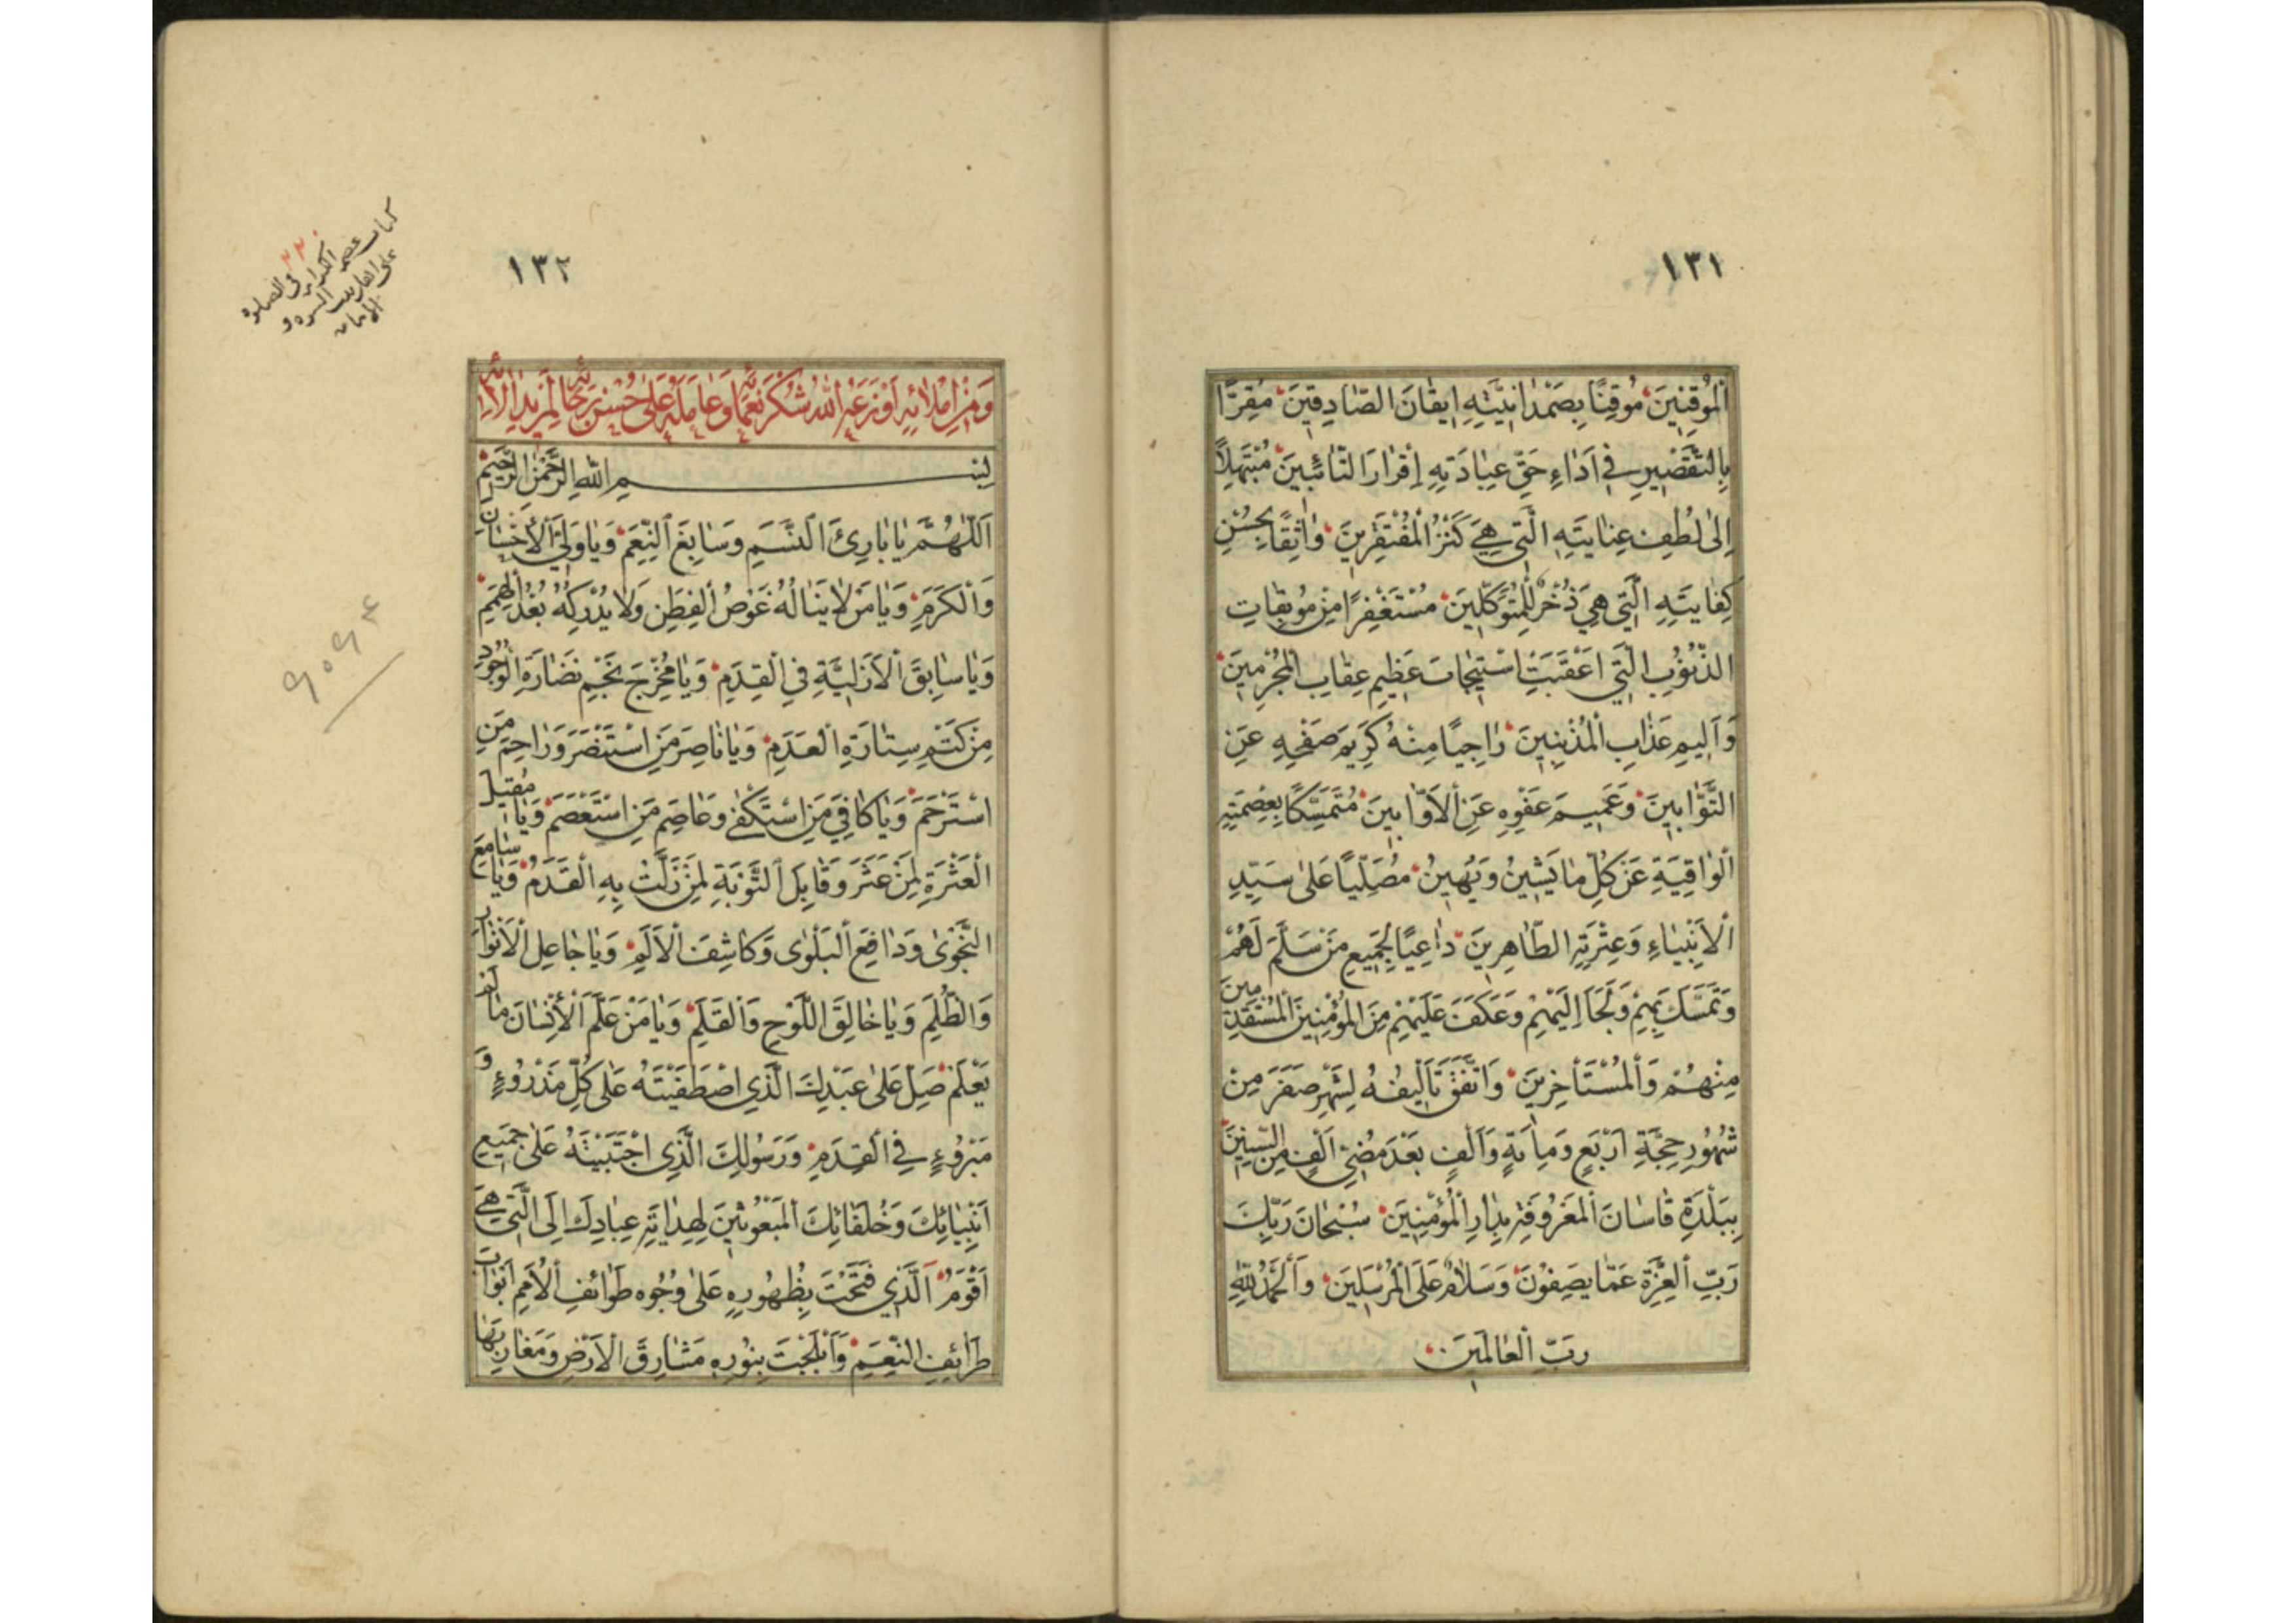 ١٣١
الْمُوقِنِينَ مُوقِنًا بِصَمْدَانِيَّتِهِ إِيقَانَ الصَّادِقِينَ مُقِرًّا
بِالتَّقْصِيرِ فِي أَدَاءِ حَقِّ عِبَادَتِهِ إِقْرَارَ التَّائِبِينَ مُبْتَهِلاً
إِلَى لُطْفِ عِنَايَتِهِ الَّتِي هِيَ كَنْزُ الْمُفْتَقِرِينَ وَاثِقًا بِحُسْنِ
كِفَايَتِهِ الَّتِي هِيَ ذُخْرٌ لِلْمُتَوَكِّلِينَ مُسْتَغْفِرًا مِنْ مُوبِقَاتِ
الذُّنُوبِ الَّتِي أَعْقَبَتْ اسْتِيجَابَ عَظِيمِ عِقَابِ الْمُجْرِمِينَ
وَأَلِيمِ عَذَابِ الْمُذْنِبِينَ رَاجِيًا مِنْهُ كَرِيمَ صَفْحِهِ عَنِ
التَّوَّابِينَ وَعَمِيمَ عَفْوِهِ عَنِ الْأَوَّابِينَ مُتَمَسِّكًا بِعِصْمَتِهِ
الْوَاقِيَةِ عَنْ كُلِّ مَا يَشِينُ وَيُهِينُ مُصَلِّيًا عَلَى سَيِّدِ
الْأَنْبِيَاءِ وَعِتْرَتِهِ الطَّاهِرِينَ دَاعِيًا لِجَمِيعِ مَنْ سَلَّمَ لَهُمْ
وَتَمَسَّكَ بِهِمْ وَلَجَأَ إِلَيْهِمْ وَعَكَفَ عَلَيْهِمْ مِنَ الْمُؤْمِنِينَ الْمُسْتَقْدِمِينَ
مِنْهُمْ وَالْمُسْتَأْخِرِينَ وَاتَّفَقَ تَأْلِيفُهُ لِشَهْرِ صَفَرَ مِنْ
شُهُورِ حِجَّةِ أَرْبَعٍ وَمِائَةٍ وَأَلْفٍ بَعْدَ مُضِيِّ أَلْفٍ مِنَ السِّنِينَ
بِبَلْدَةِ قَاسَانَ الْمَعْرُوفَةِ بِدَارِ الْمُؤْمِنِينَ سُبْحَانَ رَبِّكَ
رَبِّ الْعِزَّةِ عَمَّا يَصِفُونَ وَسَلَامٌ عَلَى الْمُرْسَلِينَ وَالْحَمْدُ لِلَّهِ
رَبِّ الْعَالَمِينَ
١٣٢
وَمِنْ إِمْلَائِهِ أَوْزَعَهُ اللَّهُ شُكْرَ نَعْمَائِهِ وَعَامَلَهُ عَلَى حُسْنِ رَجَائِهِ لِمَزِيدِ آلَائِهِ
بِسْمِ اللَّهِ الرَّحْمَنِ الرَّحِيمِ
اَللَّهُمَّ يَا بَارِئَ النَّسَمِ وَسَابِغَ النِّعَمِ وَيَا وَلِيَّ الْإِحْسَانِ
وَالْكَرَمِ وَيَا مَنْ لَا يَنَالُهُ غَوْصُ الْفِطَنِ وَلَا يُدْرِكُهُ بُعْدُ الْهِمَمِ
وَيَا سَابِقَ الْأَزَلِيَّةِ فِي الْقِدَمِ وَيَا مُخْرِجَ نَجْمِ نَضَارَةِ الْوُجُودِ
مِنْ كَتْمِ سِتَارَةِ الْعَدَمِ وَيَا نَاصِرَ مَنِ اسْتَنْصَرَ وَرَاحِمَ مَنِ
اسْتَرْحَمَ وَيَا كَافِيَ مَنِ اسْتَكْفَى وَعَاصِمَ مَنِ اسْتَعْصَمَ وَيَا مُقِيلَ
الْعَثْرَةِ لِمَنْ عَثَرَ وَقَابِلَ التَّوْبَةِ لِمَنْ زَلَّتْ بِهِ الْقَدَمُ وَيَا سَامِعَ
النَّجْوَى وَدَافِعَ الْبَلْوَى وَكَاشِفَ الْأَلَمِ وَيَا جَاعِلَ الْأَنْوَارِ
وَالظُّلَمِ وَيَا خَالِقَ اللَّوْحِ وَالْقَلَمِ وَيَا مَنْ عَلَّمَ الْإِنْسَانَ مَا لَمْ
يَعْلَمْ صَلِّ عَلَى عَبْدِكَ الَّذِي اصْطَفَيْتَهُ عَلَى كُلِّ مَذْرُوءٍ وَ
مَبْرُوءٍ فِي الْقِدَمِ وَرَسُولِكَ الَّذِي اجْتَبَيْتَهُ عَلَى جَمِيعِ
أَنْبِيَائِكَ وَخُلَفَائِكَ الْمَبْعُوثِينَ لِهِدَايَةِ عِبَادِكَ إِلَى الَّتِي هِيَ
أَقْوَمُ الَّذِي فَتَحْتَ بِظُهُورِهِ عَلَى وُجُوهِ طَوَائِفِ الْأُمَمِ أَبْوَابَ
طَرَائِفِ النِّعَمِ وَأَبْلَجْتَ بِنُورِهِ مَشَارِقَ الْأَرْضِ وَمَغَارِبَهَا